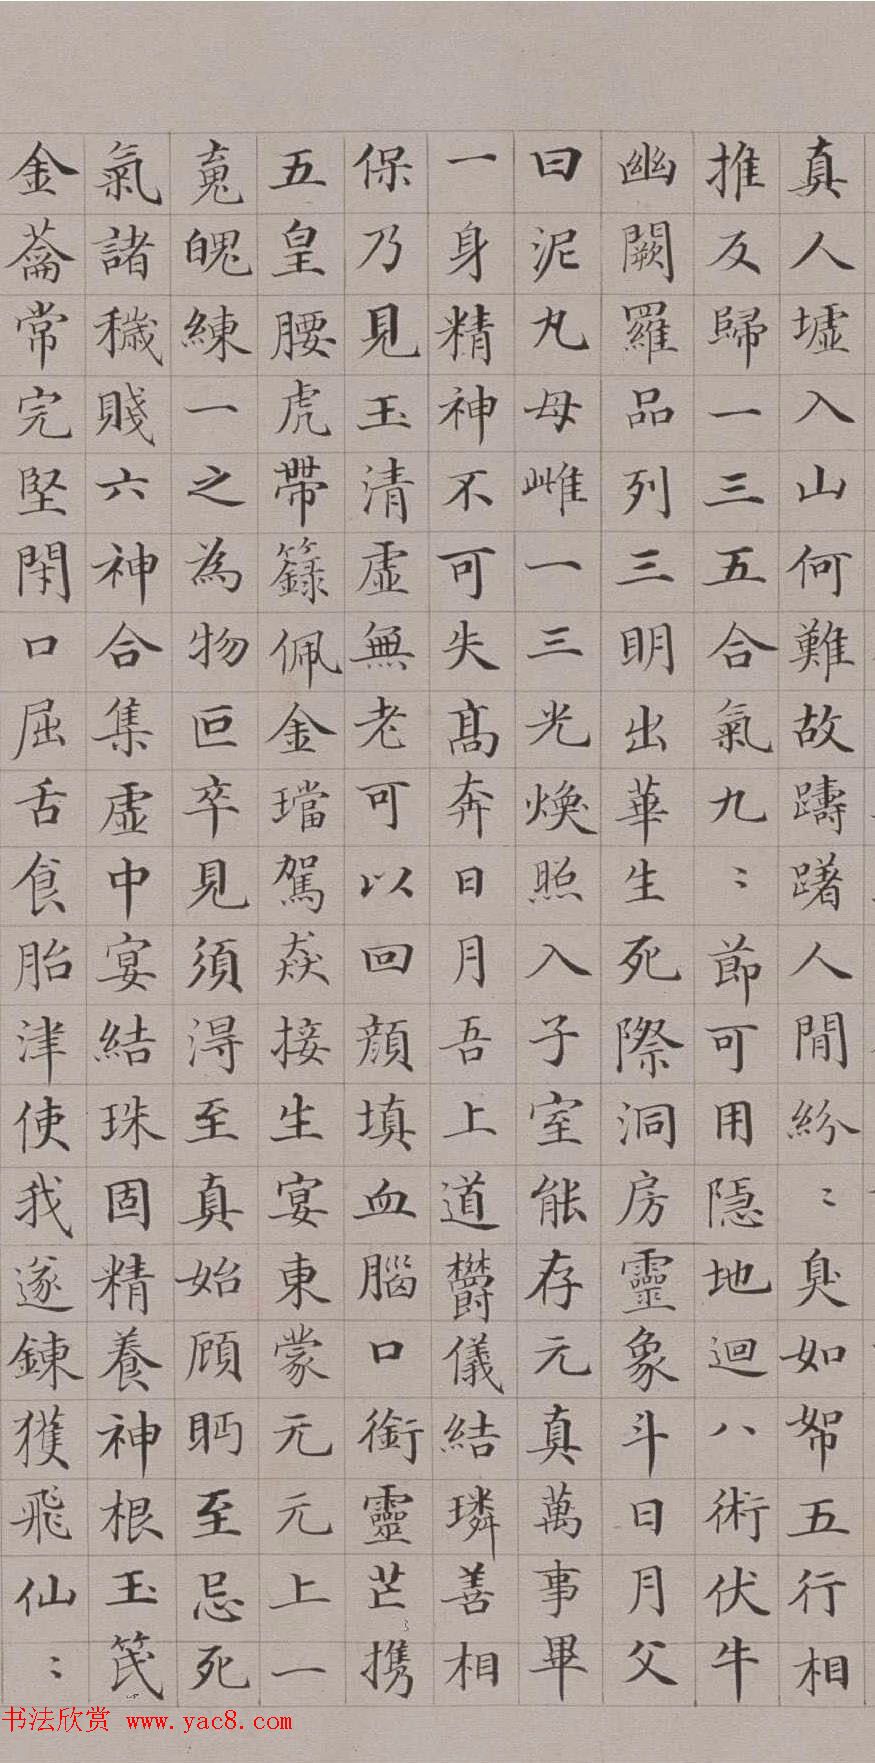 真人墟入山何難故躊躇人間紛〻臭如帤五行相
推反歸一三五合氣九〻節可用隱地迴八術伏牛
幽闕羅品列三明出華生死際洞房靈象斗日月父
曰泥丸母雌一三光煥照入子室能存元真萬事畢
一身精神不可失高奔日月吾上道鬱儀結璘善相
保乃見玉清虛無老可以回顏填血腦口銜靈芒携
五皇腰虎帶籙佩金璫駕焱接生宴東蒙元元上一
䰟魄練一之為物叵卒見須得至真始顧眄至忌死
氣諸穢賤六神合集虛中宴結珠固精養神根玉笢
金籥常完堅閇口屈舌食胎津使我遂鍊獲飛仙〻
书法欣赏 www.yac8.com